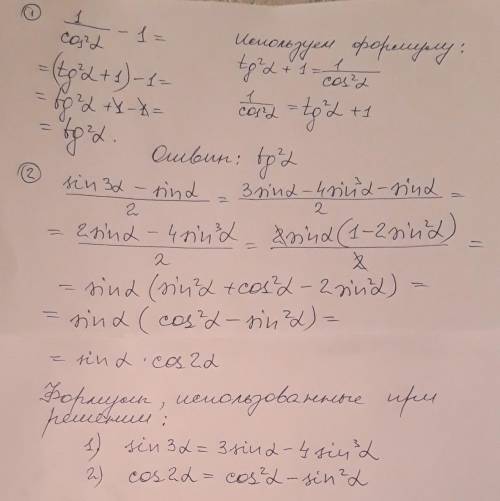 ① 1/cos²α - 1 =
Используем формулу:
= (tg²α + 1) - 1 =
tg²α + 1 = 1/cos²α
= tg²α + 1 - 1 =
1/cos²α = tg²α + 1
= tg²α.
Ответ: tg²α
② (sin3α - sinα)/2 = (3sinα - 4sin³α - sinα)/2 =
= (2sinα - 4sin³α)/2 = 2sinα(1 - 2sin²α)/2 =
= sinα (sin²α + cos²α - 2sin²α) =
= sinα ( cos²α - sin²α) =
= sinα · cos2α
Формулы, использованные при
решении:
1) sin3α = 3sinα - 4sin³α
2) cos2α = cos²α - sin²α